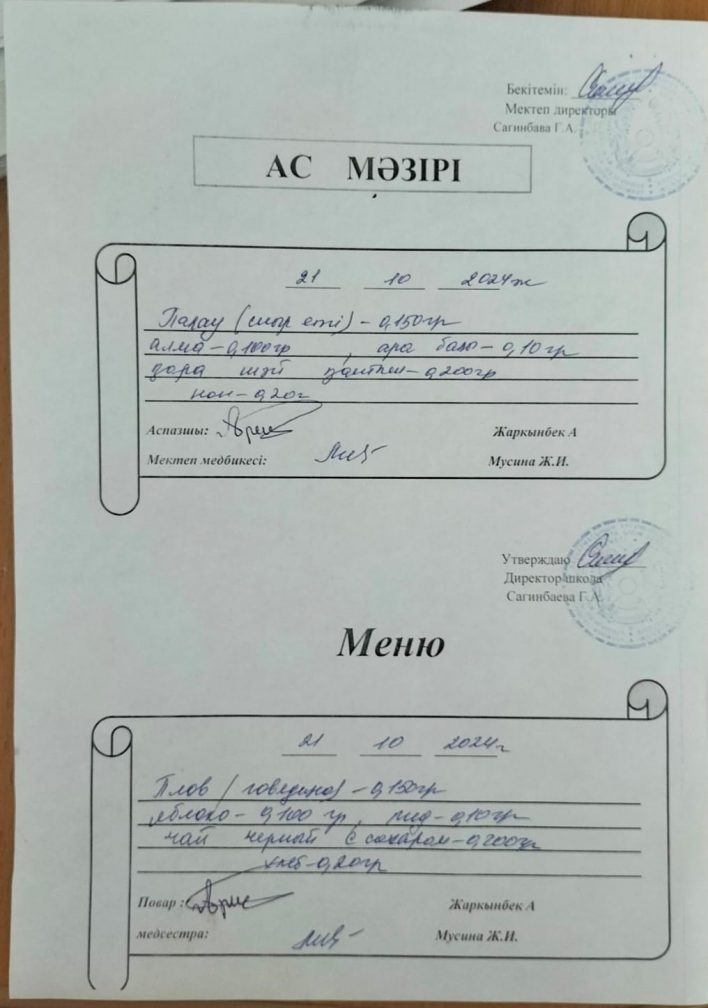 Бекітемін:
Мектеп директоры
Сагинбава Г.А.
АС МӘЗІРІ
21 10 2024ж
Палау (сиыр еті) - 0,150гр
алма - 0,100гр , ара балы - 0,10гр
қара шәй қантпен - 0,200гр
нан - 0,20г
Аспазшы: Жаркынбек А
Мектеп медбикесі: Мусина Ж.И.
Утверждаю
Директор школа
Сагинбаева Г.А.
Меню
21 10 2024г
Плов (говядина) - 0,150гр
яблоко - 0,100 гр, мёд - 0,10гр
чай черный с сахаром - 0,200гр
хлеб - 0,20гр
Повар : Жаркынбек А
медсестра: Мусина Ж.И.